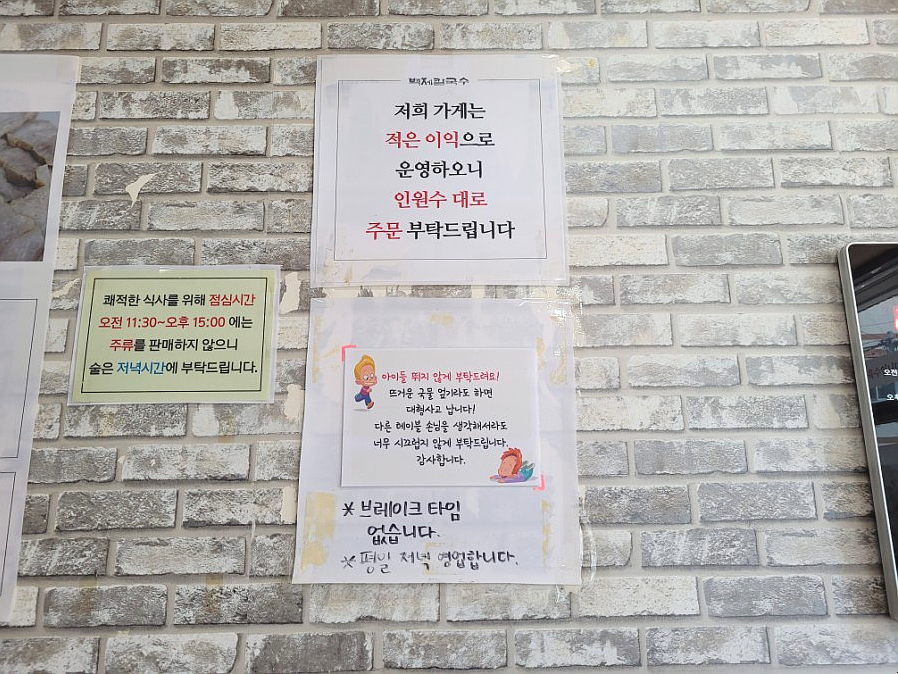 백제칼국수
저희 가게는
적은 이익으로
운영하오니
인원수 대로
주문 부탁드립니다
쾌적한 식사를 위해 점심시간
오전 11:30~오후 15:00 에는
주류를 판매하지 않으니
술은 저녁시간에 부탁드립니다.
아이들 뛰지 않게 부탁드려요!
뜨거운 국물 엎기라도 하면
대형사고 납니다!
다른 테이블 손님을 생각해서라도
너무 시끄럽지 않게 부탁드립니다.
감사합니다.
* 브레이크 타임
없습니다.
* 평일 저녁 영업합니다.
오전